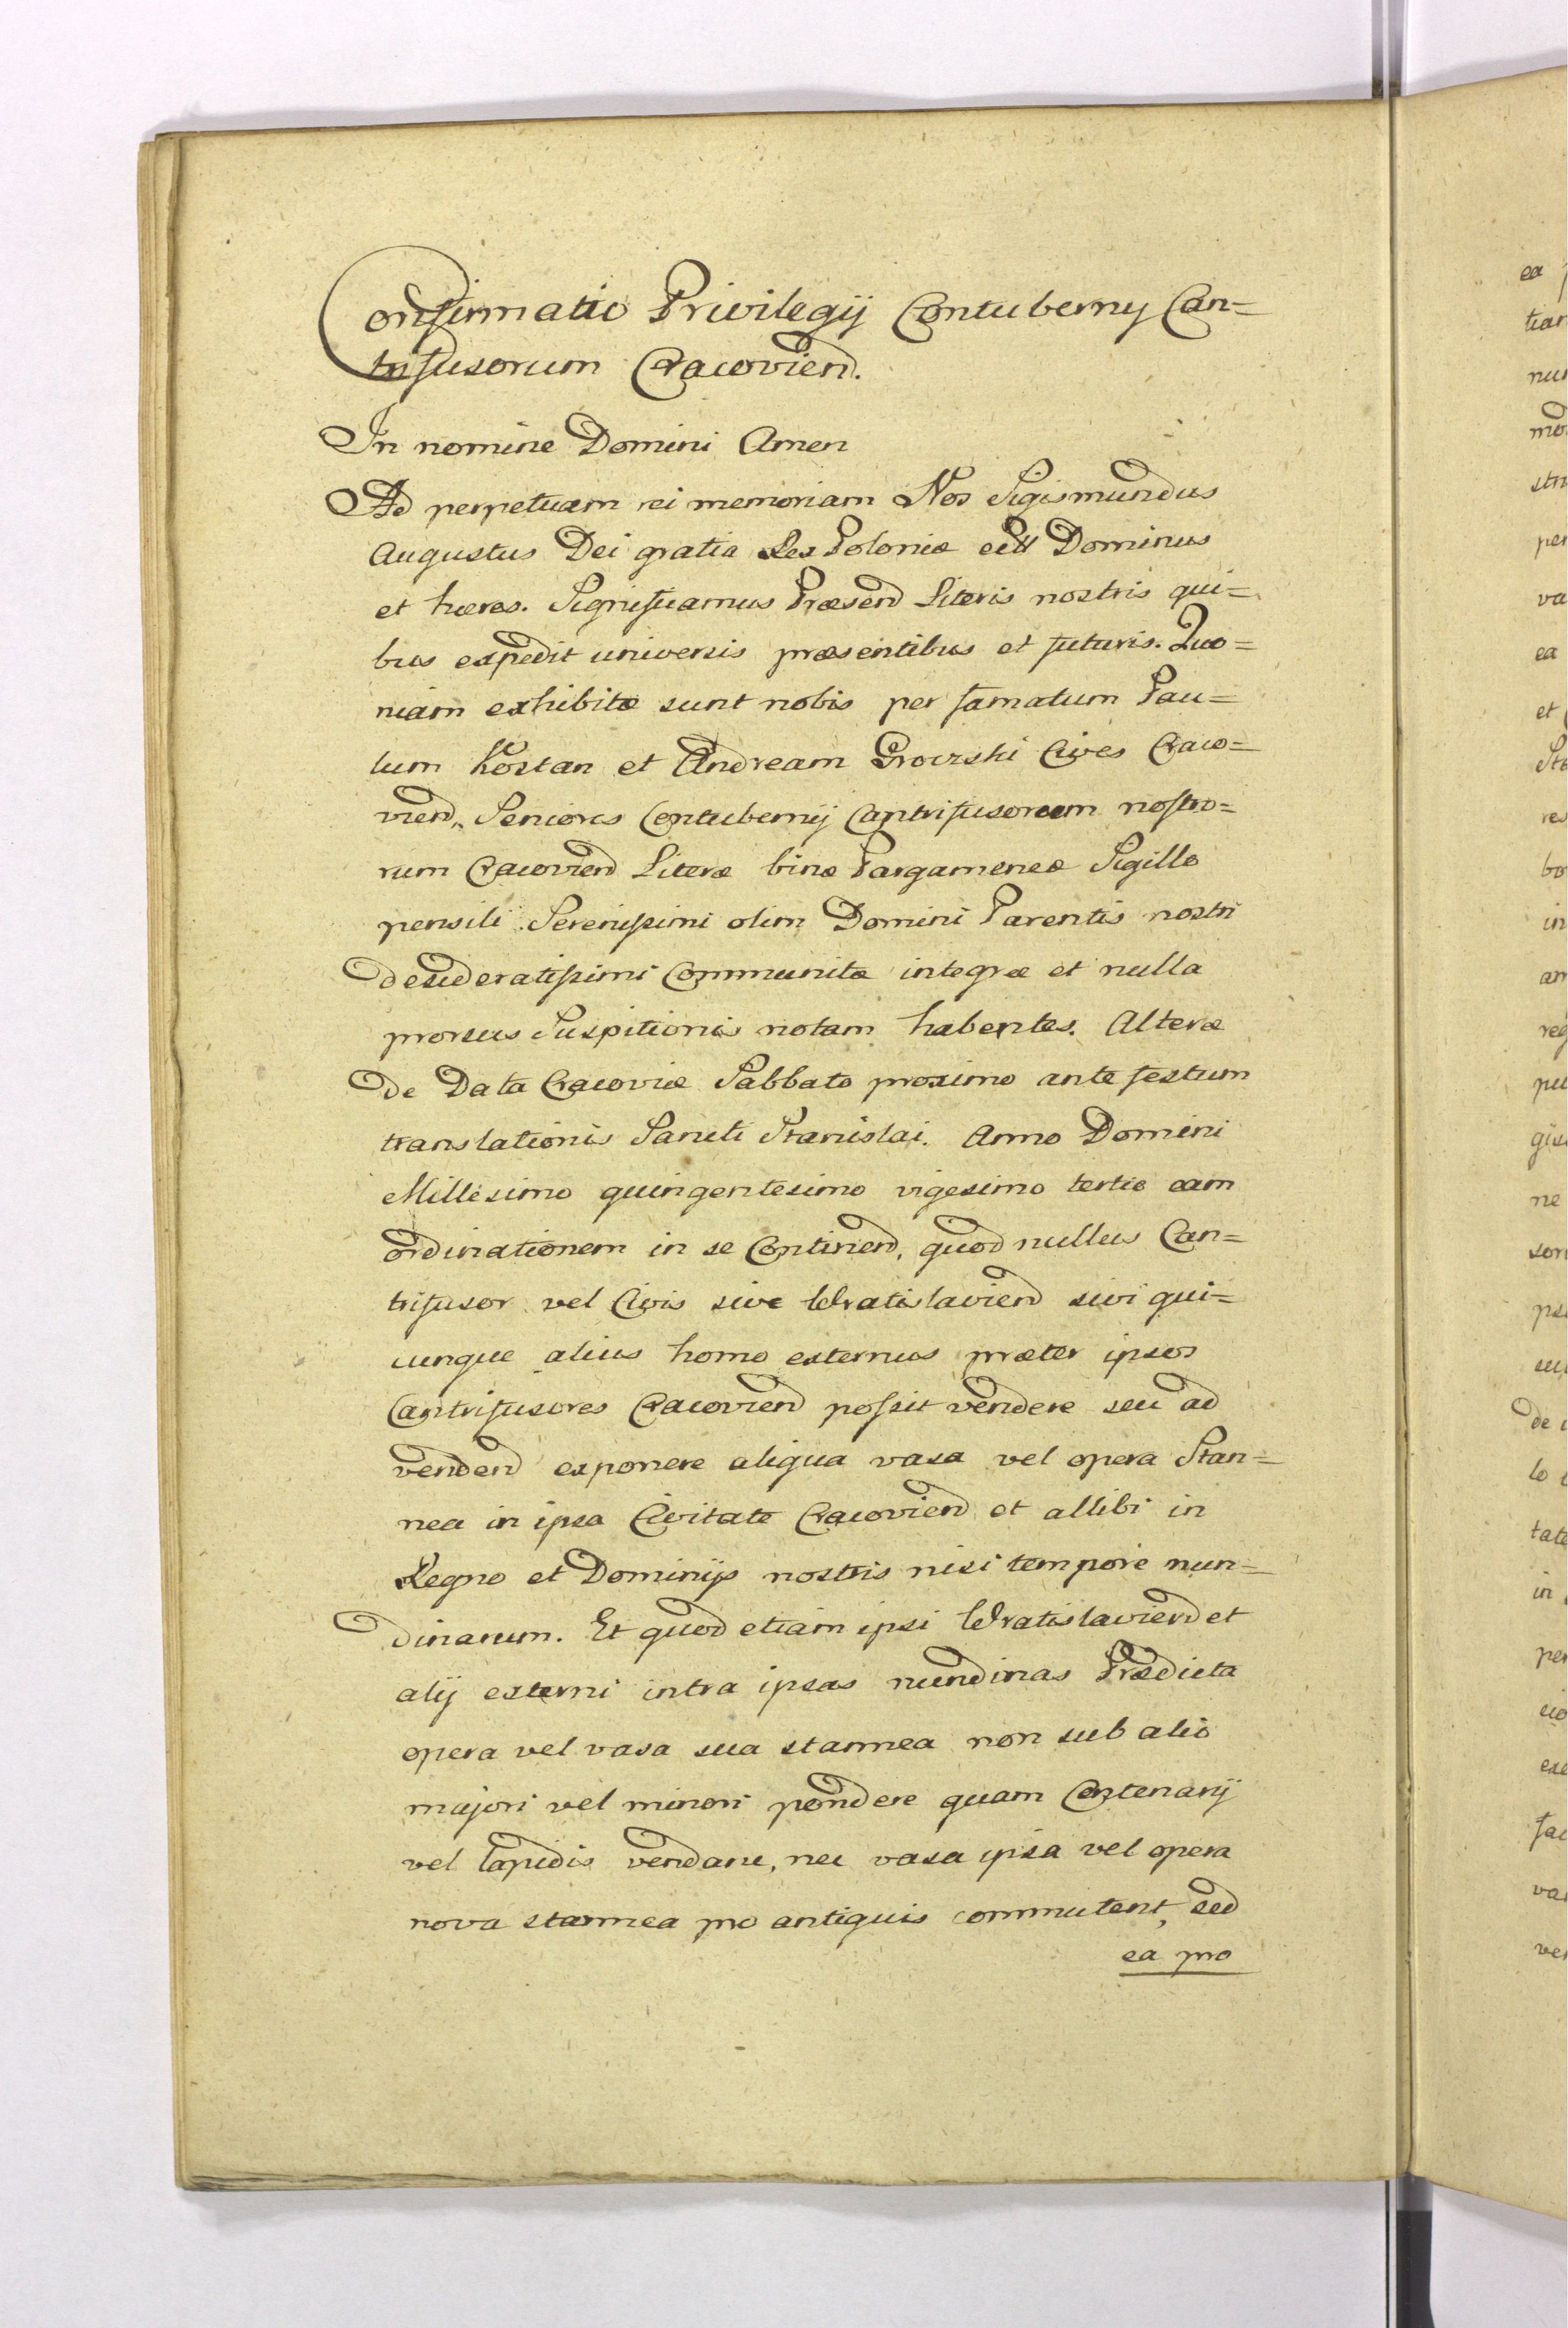 Confirmatio Privilegij Contubernij Can=
trifusorum Cracoviend.
In nomine Domini Amen
Ad perpetuam rei memoriam Nos Sigismundus
Augustus Dei gratia Rex Poloniæ Dominus
et hæres. Significamus Præsend Literis nostris qui=
bus expedit universis præsentibus et futuris. Quo=
niam exhibitæ sunt nobis per famatum Pau=
lum Kostan et Andream Grovzski Cives Craco=
viend, Seniores Contubernij Cantrifusorum nostro=
rum Cracoviend Literæ binæ Pargameneæ Sigillo
pensili Serenissimi olim Domini Parentis nostri
desideratissimi Communitæ integræ et nulla
prorsus Suspitionis notam habentes. Alteræ
de Data Cracoviæ Sabbato proximo ante festum
translationis Sancti Stanislai. Anno Domini
Millesimo quingentesimo vigesimo tertio eam
ordinationem in se Continend, quod nullus Can=
trifusor vel Civis sive Wratislaviend sivi qui=
cunque alius homo externus præter ipsos
Cantrifusores Cracoviend possit vendere seu ad
vendend exponere aliqua vasa vel opera Stan=
nea in ipsa Civitate Cracoviend et allibi in
Regno et Dominijs nostris nisi tempore nun=
dinarum. Et quod etiam ipsi Wratislaviend et
alij externi intra ipsas nundinas Prædicta
opera vel vasa sua stannea non sub alio
majori vel minori pondere quam Centenarij
vel lapidis vendant, nec vasa ipsa vel opera
nova stannea pro antiquis commutent, sed
ea pro
ea
tian
nu
mo
stn
per
va
ea
et
Sta
res
bo
in
am
reg
pu
gis
ne
sor
ps
su
de
lo
tate
in
per
cio
exe
fac
va
ve